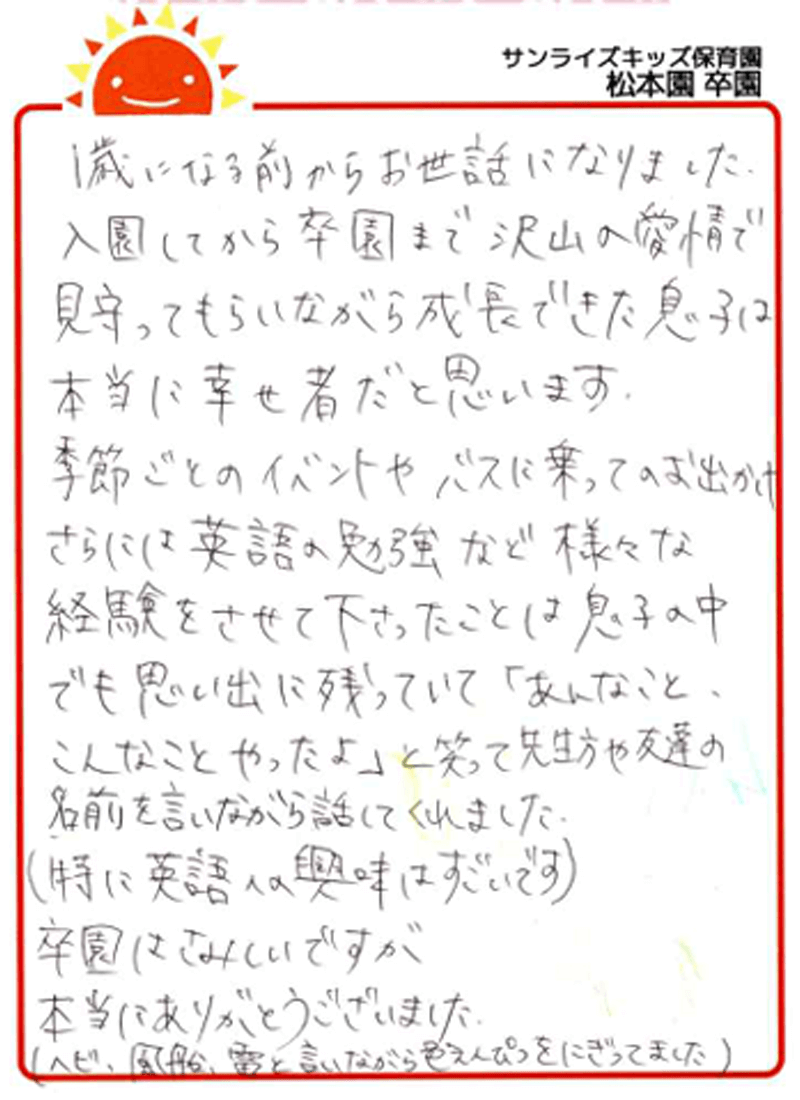 サンライズキッズ保育園
松本園 卒園
1歳になる前からお世話になりました.
入園してから卒園まで沢山の愛情で
見守ってもらいながら成長できた息子は
本当に幸せ者だと思います.
季節ごとのイベントやバスに乗ってのお出かけ
さらには英語の勉強など様々な
経験をさせて下さったことは息子の中
でも思い出に残っていて「あんなこと、
こんなことやったよ」と笑って先生方や友達の
名前を言いながら話してくれました.
(特に英語への興味はすごいです)
卒園はさみしいですが
本当にありがとうございました.
(ヘビ、風船、雷と言いながら色えんぴつをにぎってました)